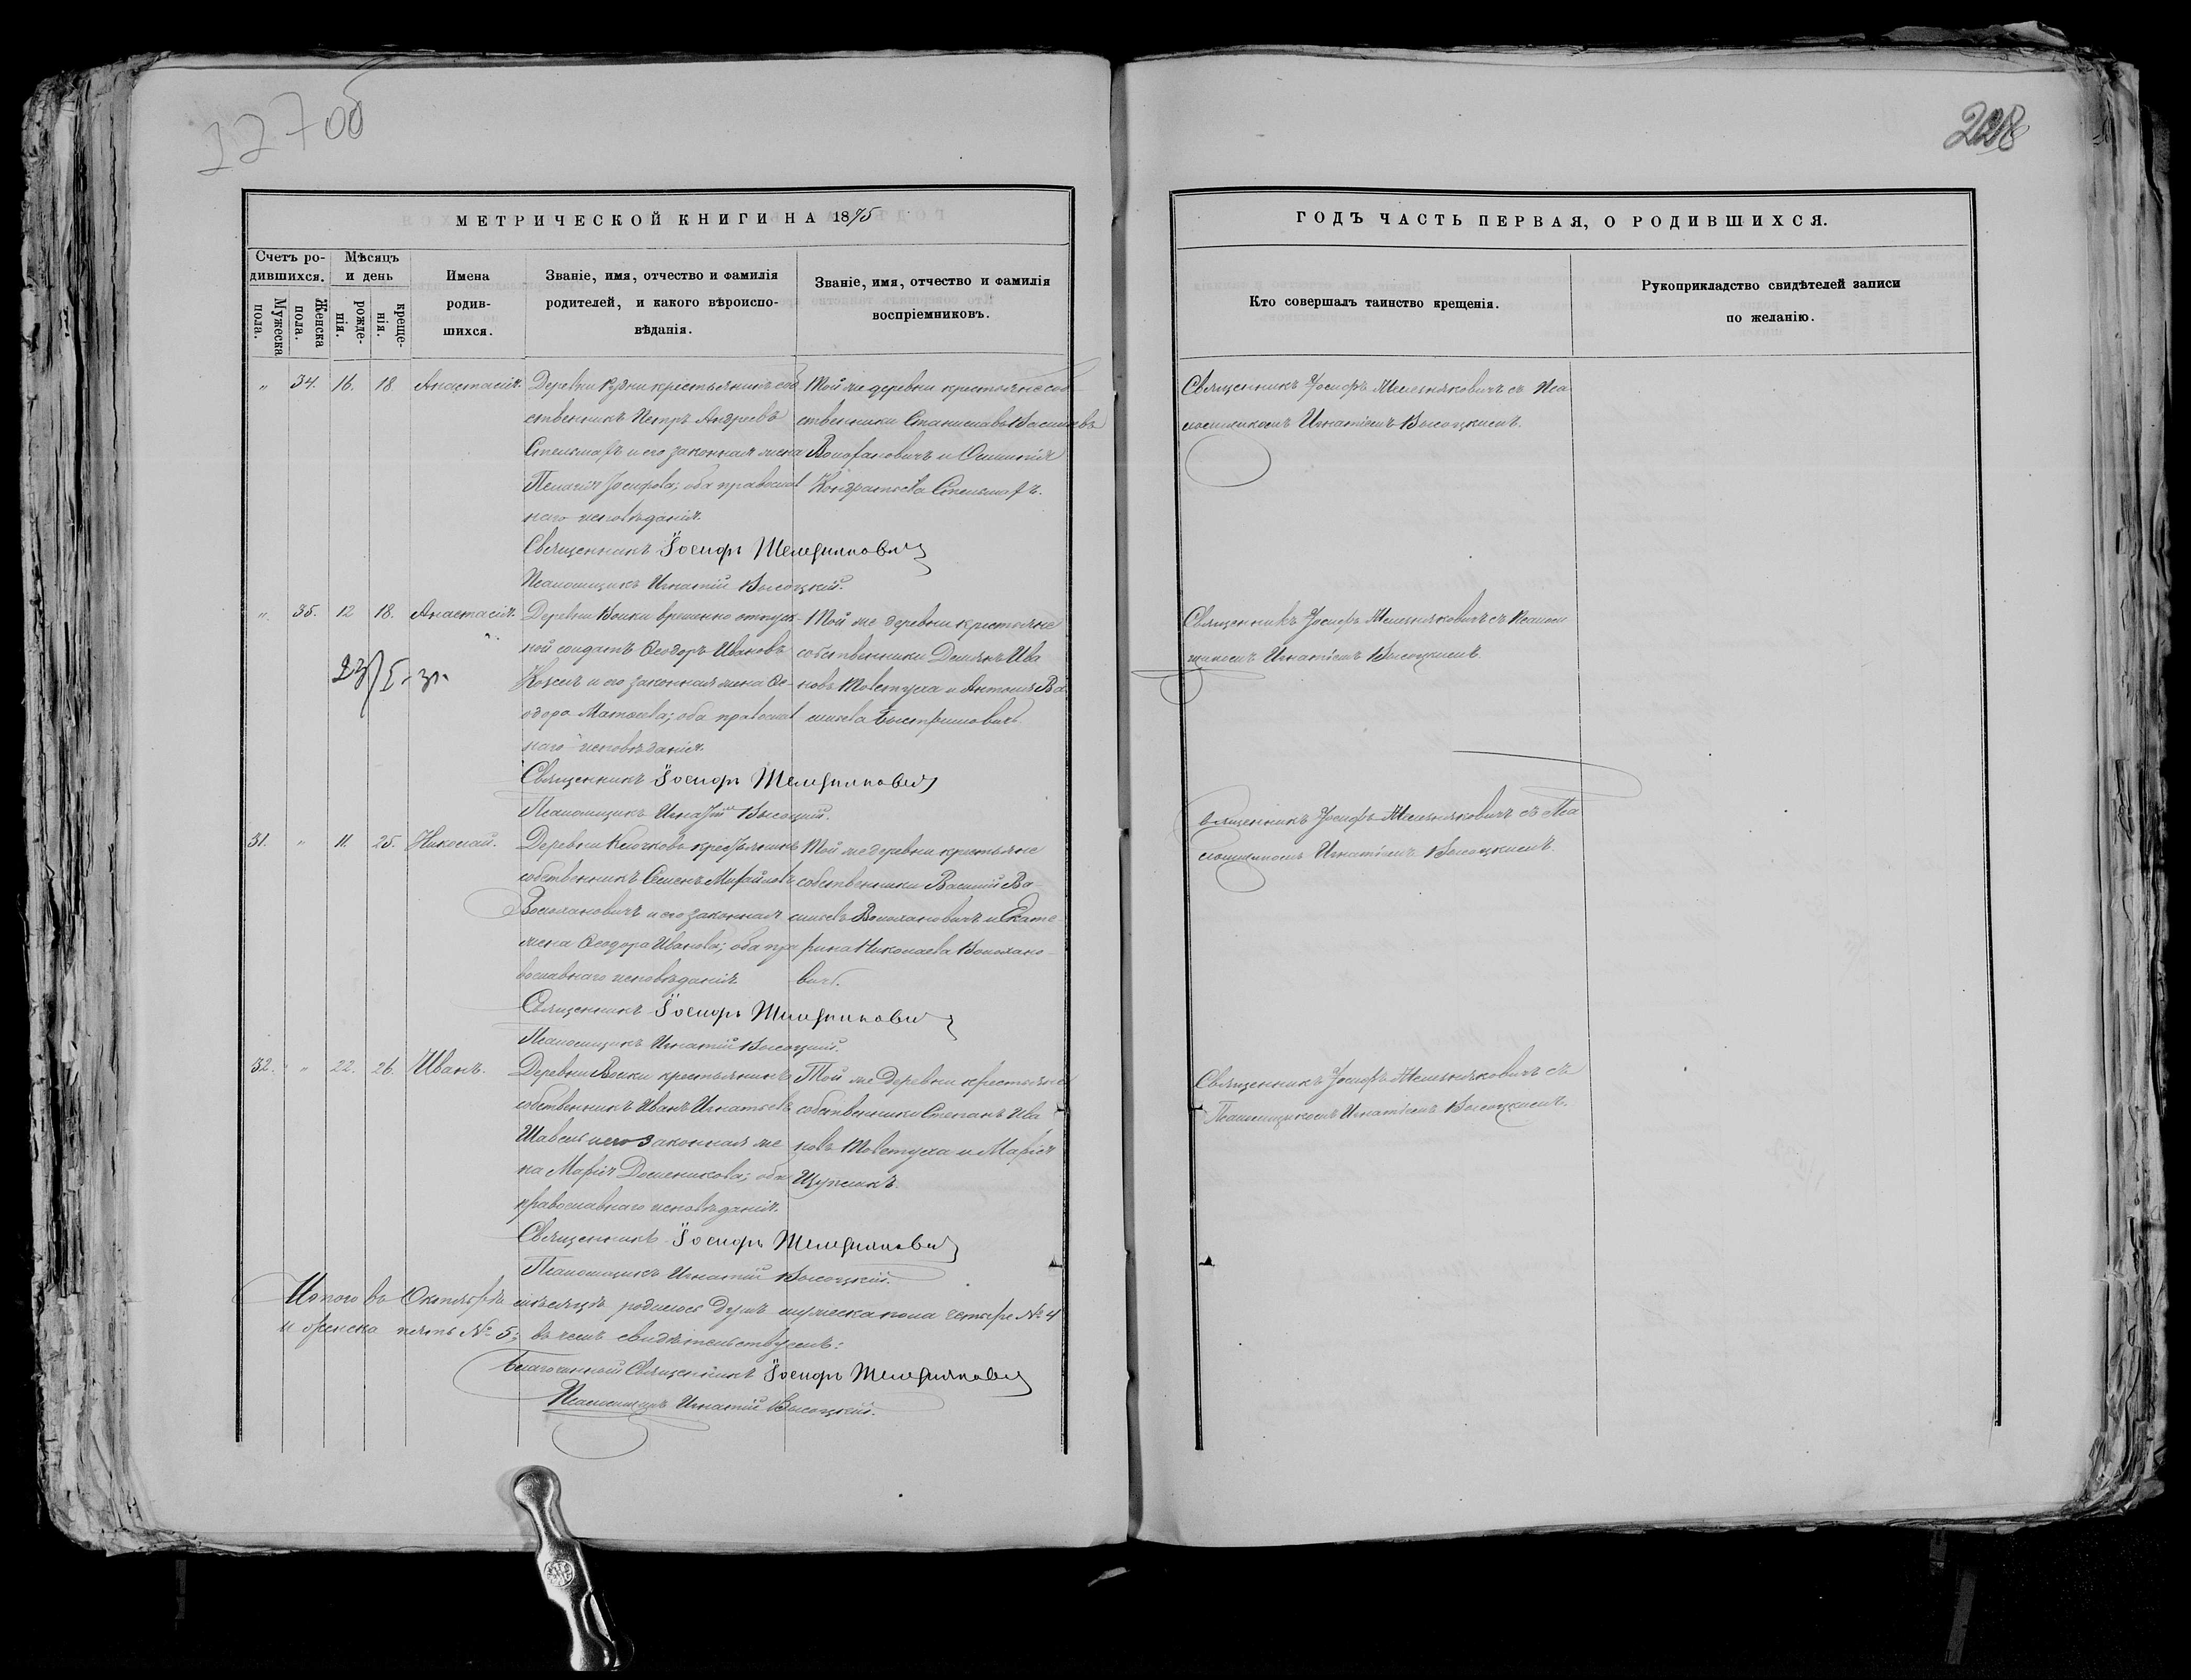 227об
228
МЕТРИЧЕСКОЙ КНИГИ НА 1875
ГОДЪ ЧАСТЬ ПЕРВАЯ, О РОДИВШИХСЯ.
Счетъ ро-
дившихся.
Мужеска пола.
Женска пола.
Мѣсяцъ
и день
рожде-
нія.
креще-
нія.
Имена
родив-
шихся.
Званіе, имя, отчество и фамилія
родителей, и какого вѣроиспо-
вѣданія.
Званіе, имя, отчество и фамилія
воспріемниковъ.
Кто совершалъ таинство крещенія.
Рукоприкладство свидѣтелей записи
по желанію.
„ 34. 16. 18 Анастасія.
Деревни Рудни крестьянинъ соб
ственникъ Петръ Андреевъ
Стельмахъ и его законная жена
Пелагія Іосифова; оба православ
наго исповѣданія.
Священникъ Іосифъ
Псаломщикъ Игнатій Высоцкій.
Той же деревни крестьяне соб
ственники Станиславъ Васильевъ
и
Кондратьева Стельмахъ.
Священникъ Іосифъ съ Пса
ломщикомъ Игнатіемъ Высоцкимъ.
„ 35. 12 18. Анастасія.
Деревни Волки временно отпуск-
ной солдатъ Ѳеодоръ Ивановъ
и его законная жена Ѳе-
одора Матѳеева; оба православ
наго исповѣданія.
Священникъ Іосифъ
Псаломщикъ Игнатій Высоцкій.
Той же деревни крестьяне
собственники Демьянъ Ива
новъ Товстуха и Антонія Ва
сильева
Священникъ Іосифъ съ Псалом
щикомъ Игнатіемъ Высоцкимъ.
31. „ 11. 25. Николай.
Деревни крестьянинъ
собственникъ Семенъ Михайловъ
Волохановичъ и его законная
жена Ѳеодора Иванова; оба пра
вославнаго исповѣданія.
Священникъ Іосифъ
Псаломщикъ Игнатій Высоцкій.
Той же деревни крестьяне
собственники Василій Ва-
сильевъ Волохановичъ и Екате-
рина Николаева Волохано-
вичъ.
Священникъ Іосифъ съ Пса
ломщикомъ Игнатіемъ Высоцкимъ.
32. „ 22. 26. Иванъ.
Деревни Волки крестьянинъ
собственникъ Иванъ Игнатьевъ
Шавель и его законная же
на Марія оба
православнаго исповѣданія.
Священникъ Іосифъ
Псаломщикъ Игнатій Высоцкій.
Той же деревни крестьяне
собственники Степанъ Ива
новъ Товстуха и Марія
Священникъ Іосифъ съ
Псаломщикомъ Игнатіемъ Высоцкимъ.
Итого въ Октябрѣ мѣсяцѣ родилось душъ мужеска пола четыре № 4
и женска пять № 5; въ чемъ свидѣтельствуемъ:
Благочинный Священникъ Іосифъ
Псаломщикъ Игнатій Высоцкій.